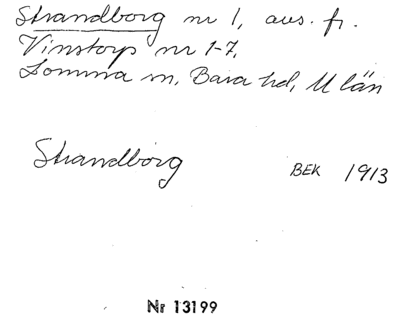 Strandborg nr 1, avs. fr.
Vinstorp nr 1-7,
Lomma sn, Bara hd, M län
Strandborg
BEK 1913
Nr 13199